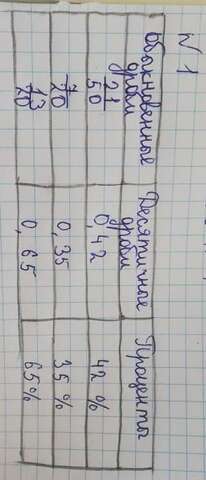 № 1
Обыкновенные дроби Десятичные дроби Проценты
21/50 0,42 42 %
7/20 0,35 35 %
13/20 0,65 65%